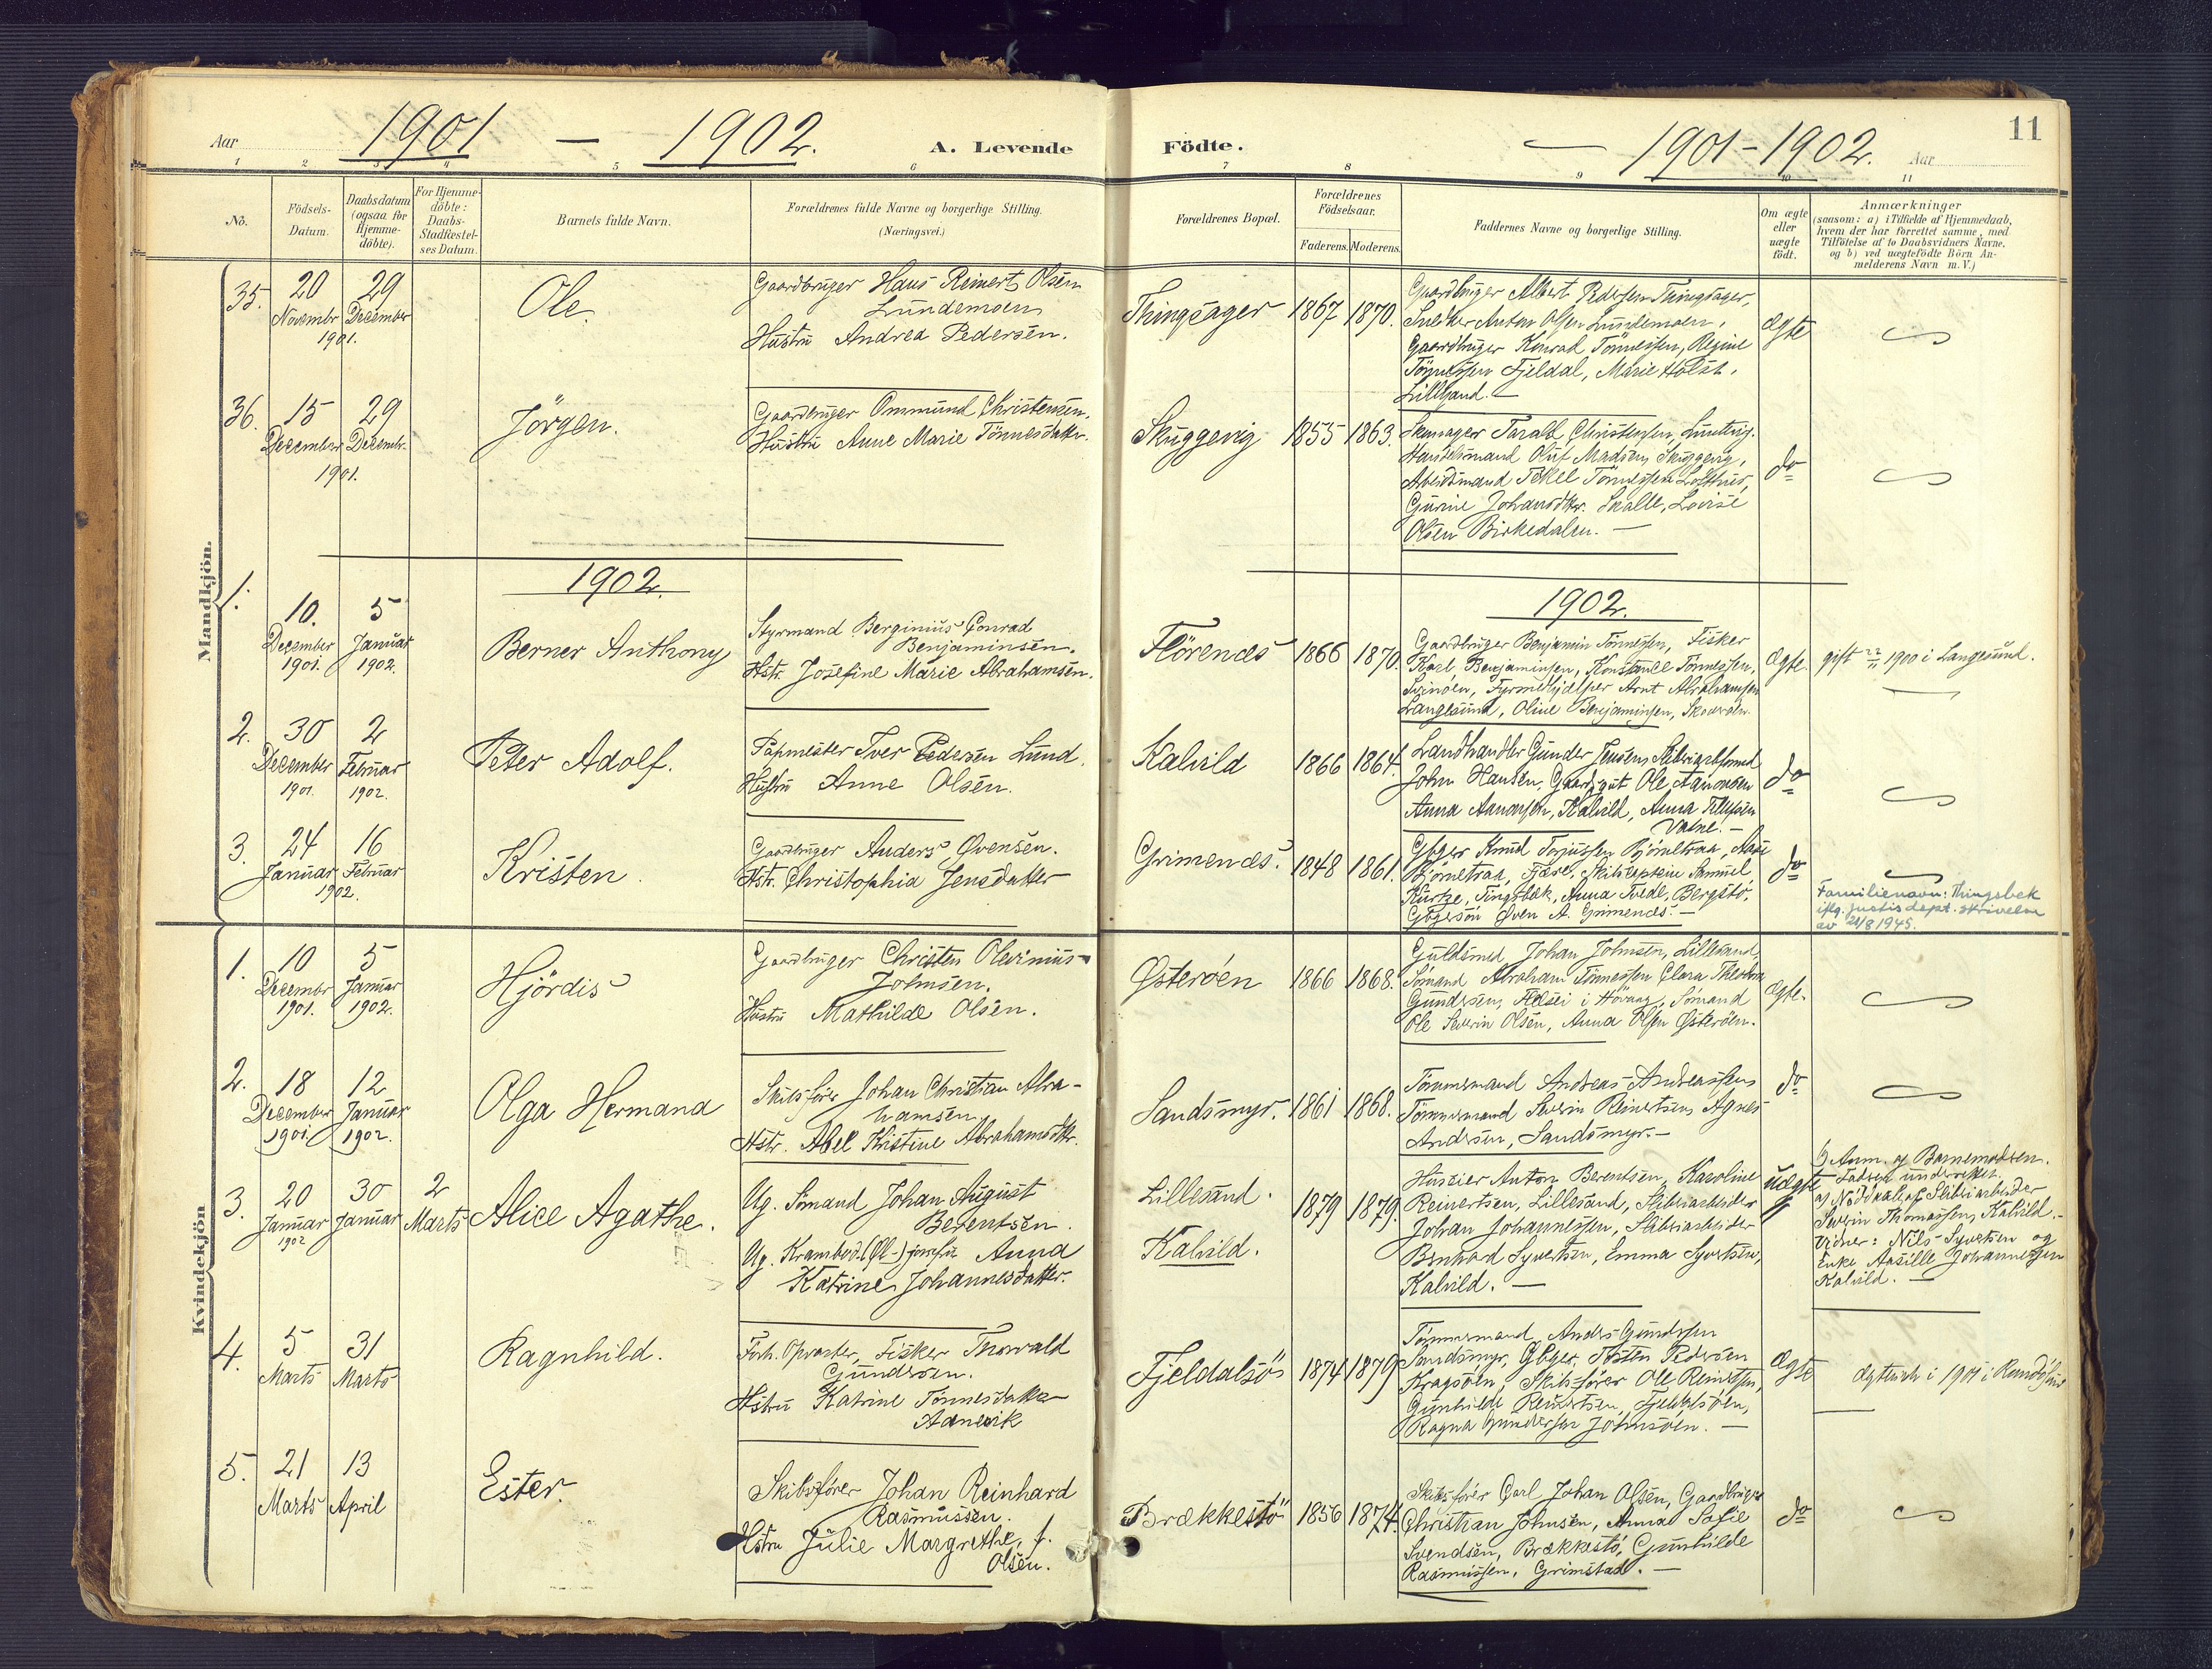 Aar 1901 — 1902. A. Levende Födte. — 1901-1902. Aar 11
1 2 3 4 5 6 7 8 9 10 11
Nö.
Födsels-Datum.
Daabsdatum (ogsaa for Hjemme-döbte).
For Hjemme-döbte: Daabs-Stadfæstel-ses Datum.
Barnets fulde Navn.
Forældrenes fulde Navne og borgerlige Stilling.
(Næringsvei.)
Forældrenes Bopæl.
Forældrenes Födselsaar.
Faderens. Moderens.
Faddernes Navne og borgerlige Stilling.
Om ægte eller uægte födt.
Anmærkninger
(saasom: a) i Tilfælde af Hjemmedaab,
hvem der har forrettet samme, med
Tilföielse af to Daabsvidners Navne.
og b) ved uægtefödte Börn An-
melderens Navn m. V.)
Mandkjön.
35. 20 November 1901. 29 December
Ole.
Gaardbruger Hans Reinert Olsen
Lundemoen
Hustru Andrea Pedersen.
Thingsager 1867 1870.
Gaardbruger Albert Pedersen Thingsager,
Snedker Anton Olsen Lundemoen,
Gaardbruger Konrad Tönnessen, Regine
Tönnessen Fjeldal, Marie Holst,
Lillesand.
Ægte
36. 15 December 29 Decembr. 1901.
Jörgen.
Gaardbruger Ommund Christensen.
Hustru Anne Marie Tönnesdatter.
Skuggevig 1855 1863.
Taralb Christensen,
Olüf Madsen Skuggevig,
Arbeidsmand Tönnessen
Gurine Johansdtr. Skalle, Lovise
Olsen Birkedalen. —
do
1902.
1902.
1. 10. December 1901. 5 Januar 1902.
Berner Anthony
Styrmand Berginius Conrad
Benjaminsen.
Hstr. Josefine Marie Abrahamsen.
Flörenæs 1866 1870.
Gaardbruger Benjamin Tönnessen, Fisker
Karl Benjaminsen, Konstanse Tönnessen,
Svinöen, Fyrmedhjelper Arnt Abrahamsen
Langesund, Oline Benjaminsen,
Ægte.
gift 22/11 1900 i Langesund.
2. 30 December 1901. 2 Februar 1902.
Peter Adolf.
Papmester Iver Pedersen Lund.
Hustru Anne Olsen.
Kalvild 1866 1864.
Landhandler Gunder Jensen,
John Hansen, Ole Aanonsen
Anna Aanonsen, Kalvild, Anna Tellefsen
Vatne. —
do
3. 24 Januar 16 Februar 1902.
Kristen.
Gaardbruger Anders Øvensen.
Hstr. Christophia Jensdatter
Grimenæs. 1848 1861.
Gbger Knud Torjussen Björnetraa,
Björnetraa, Fjære, Skibskaptein Samuel
Kurtze, Tingsbæk, Anna Tvede, Bergstö,
Gbgersön Øven A. Grimenæs. —
do
Familienavn: Thingsbek
iflg. justisdept. skrivelse
av 21/8 1945.
Kvindekjön
1. 10 Decembr 1901. 5 Januar 1902.
Hjördis
Gaardbruger Christen Olevinius
Johnsen.
Hustru Mathilde Olsen.
Østeröen 1866 1868.
Guldsmed Johan Johnsen, Lillesand,
Sömand Abraham Tönnessen, Clara
Gundersen, i Hövaag, Sömand
Ole Severin Olsen, Anna Olsen Østeröen.
Ægte.
2. 18 December 1901. 12 Januar 1902.
Olga Hermana
Skibsförer Johan Christian Abra-
hamsen
Hstr. Abel Kristine Abrahamsdtr.
Sandsmyr. 1861 1868.
Tömmermand Andreas Andreassen,
Tömmermand Severin Reinertsen, Agnes
Andersen, Sandsmyr. —
do
3. 20 Januar 1902 30 Januar 2 Marts
Alice Agathe.
Ug. Sömand Johan August
Berentsen.
Ug. Anna
Katrine Johannesdatter.
Lillesand.
Kalvild. 1879 1879.
Huseier Anton Berentsen, Karoline
Reinertsen, Lillesand, Sliberiarbeider
Johan Johannessen, Sliberiarbeider
Bernhard Syvertsen, Emma Syvertsen,
Kalvild. —
Uægte
b) Anm. af Barnemoderen.
Faderen underrettet.
a) Nöddaab af Sliberiarbeider
Severin Thomassen, Kalvild. —
Vidner: Nils Syvertsen og
Enke Johannessen
Kalvild. —
4. 5 Marts 31 Marts
Ragnhild.
Forh. Opvarter, Fisker Thorvald
Gundersen.
Hstru Katrine Tönnesdatter
Aanevik
Fjeldalsö 1874 1879
Tömmermand Anders Gundersen
Sandsmyr, Gbger. Torsten Pedersen
Kragsöen, Skibsförer Ole Reinertsen,
Gunhilde Reinertsen, Fjeldalsöen,
Ragna Gundersen Johnsöen. —
Ægte
Ægteviet i 1901 i
5. 21 Marts 13 April
Ester.
Skibsförer Johan Reinhard
Rasmussen.
Hstru Julie Margrethe, f.
Olsen.
Brækkestö 1856 1874.
Skibsförer Carl Johan Olsen, Gaardbruger
Christian Johnsen, Anna Sofie
Svendsen, Brækkestö, Gunhilde
Rasmussen, Grimstad. —
do